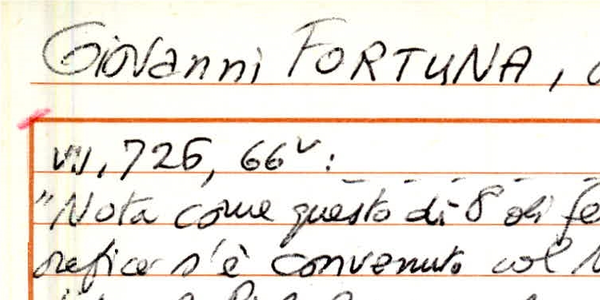 Giovanni FORTUNA,
VII, 725, 66v:
"Nota come questo dì 8 di fe
orefice s'è convenuto col